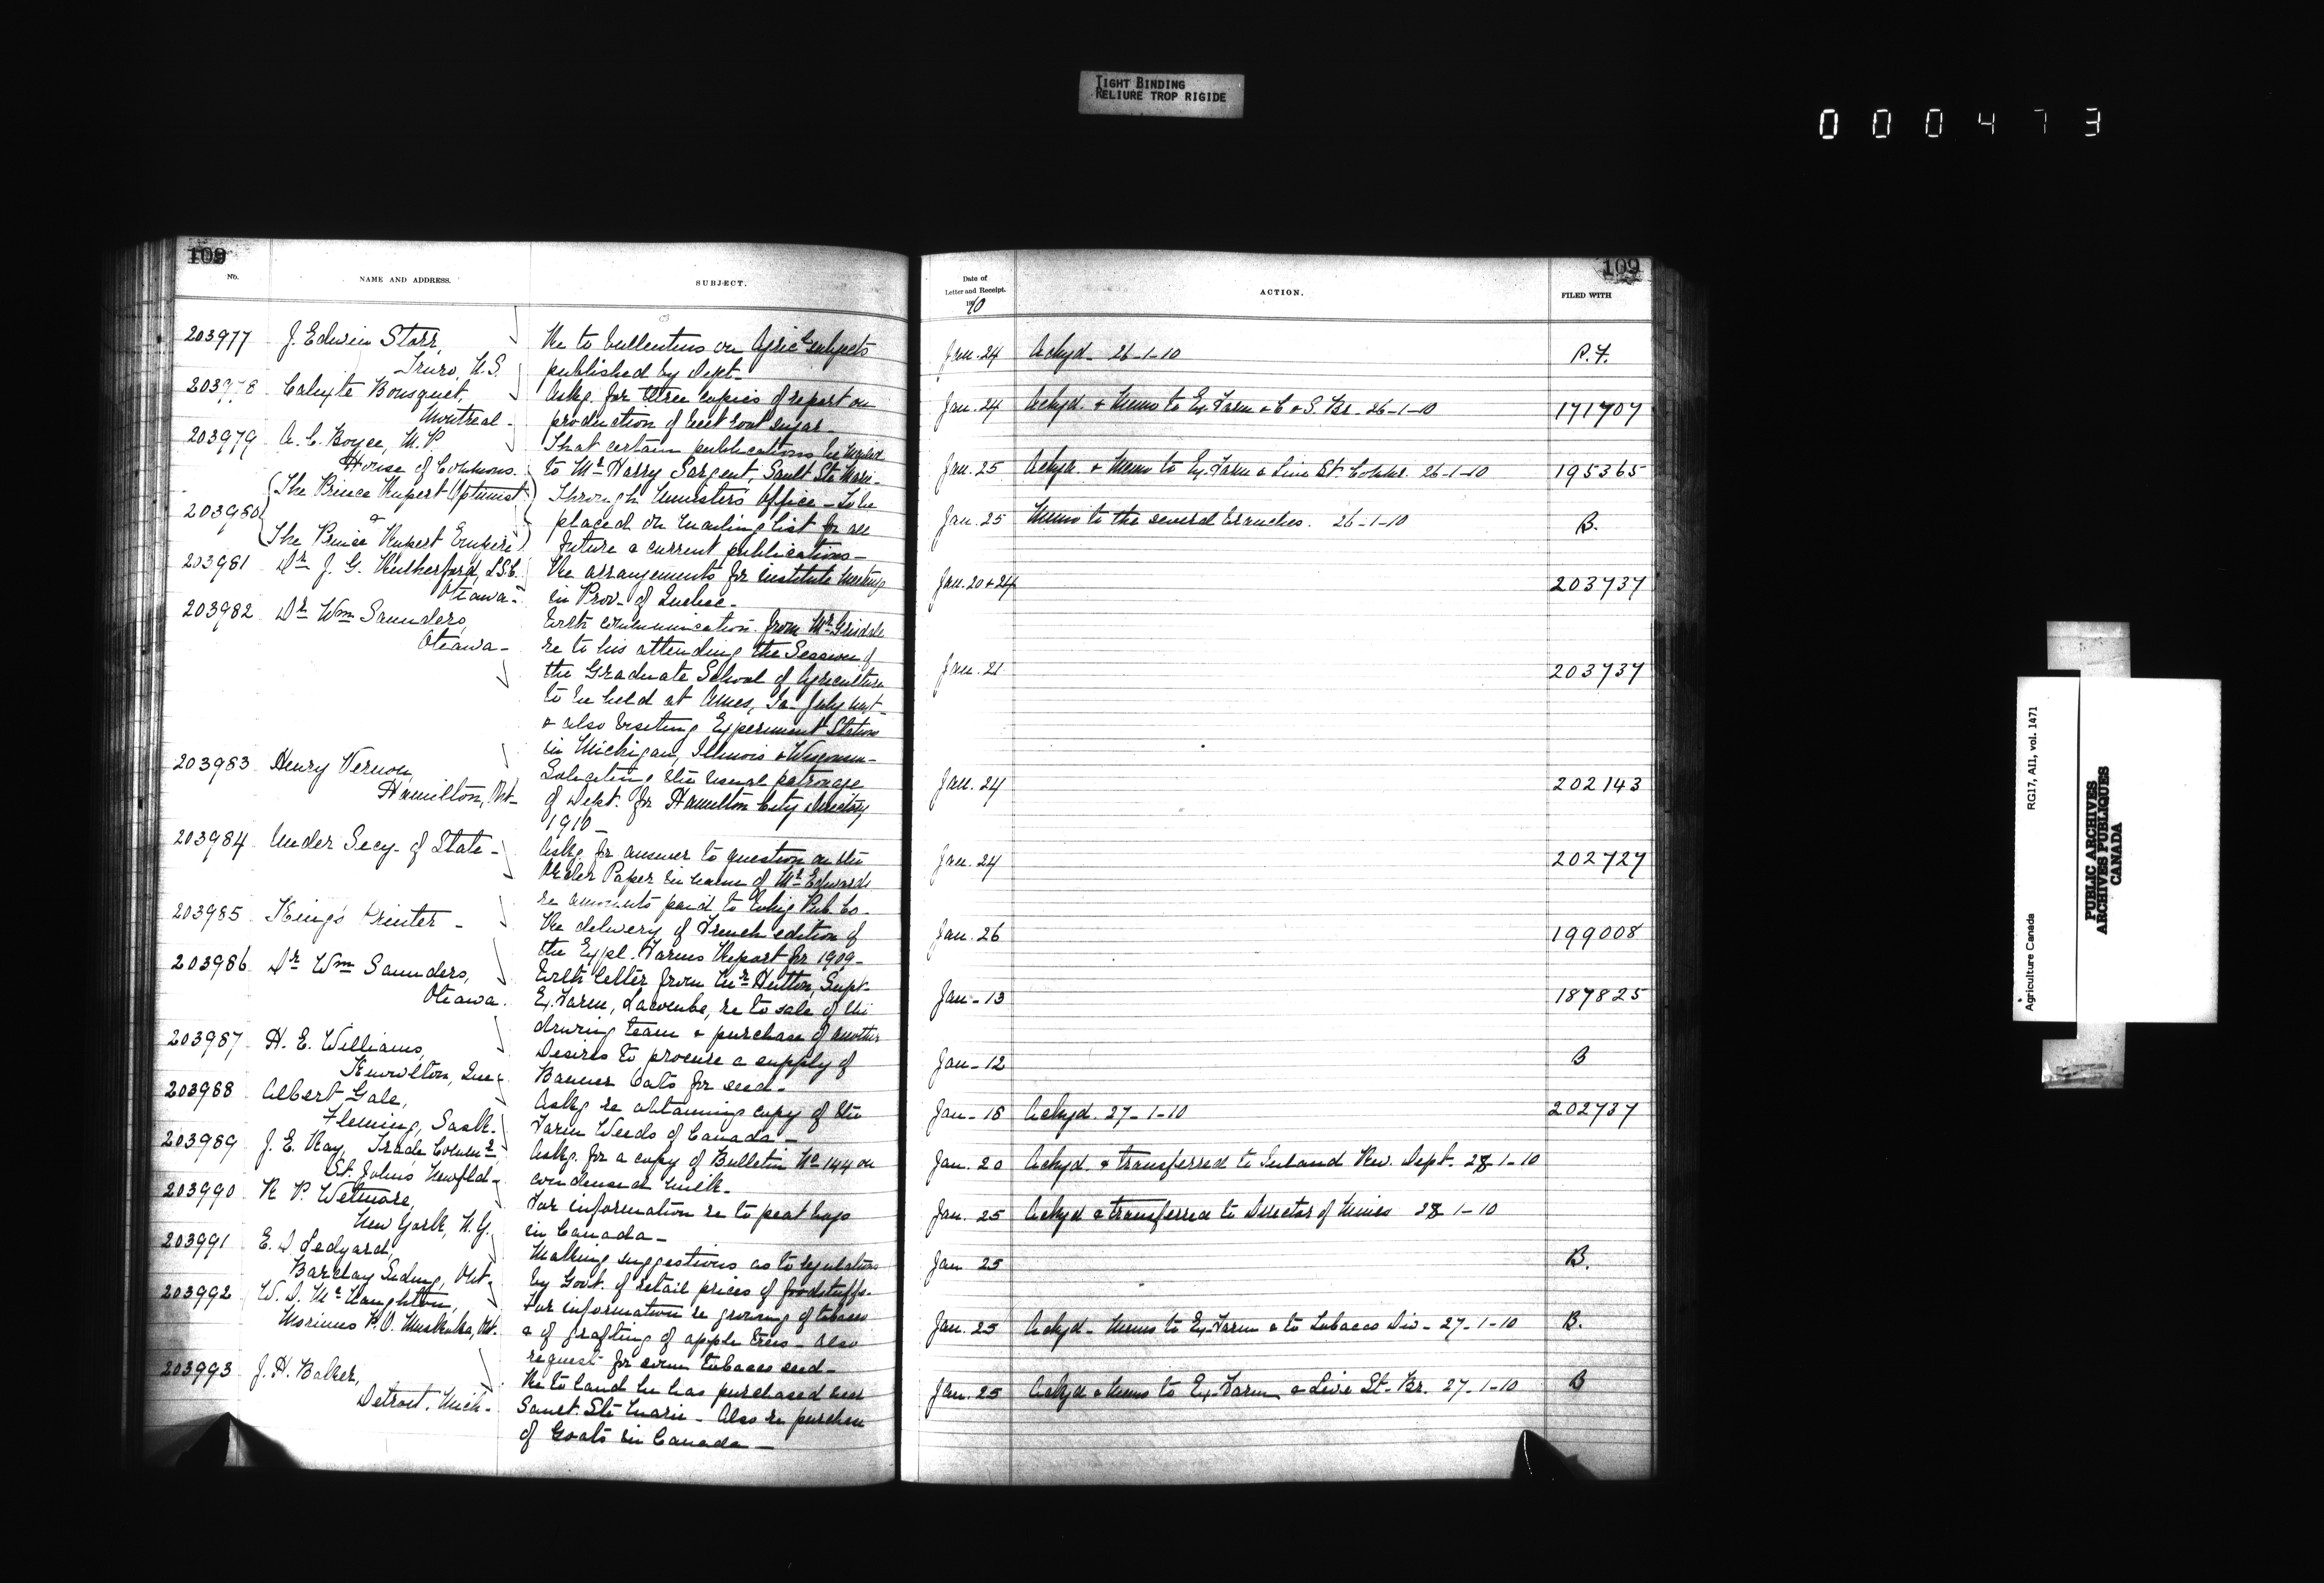 TIGHT BINDING
RELIURE TROP RIGIDE
0 0 0 4 7 3
109
109
No.
NAME AND ADDRESS.
SUBJECT.
Date of
Letter and Receipt.
1910
ACTION.
FILED WITH
203977 J. Edwin Starr,
Truro, N.S.
Re to bulletins on Agricl subjects
published by Dept.
Jan. 24 Ackgd. 26-1-10 P.F.
203978 Calixte Bousquet,
Montreal -
Askg. for three copies of report on
production of beet root sugar -
Jan. 24 Ackgd. & Memo to Ex. Farm & C & S. Br. 26-1-10 171707
203979 A. C. Boyce, M.P.
House of Commons.
That certain publications be mailed
to Mr Harry Sargent, Sault Ste Marie -
Jan. 25 Ackgd. & Memo to Ex. Farm & Live St. Commr. 26-1-10 195365
203980 The Prince Rupert Optimist
&
The Prince Rupert Empire
Through Minister's Office - To be
placed on mailing list for all
future & current publications -
Jan. 25 Memo to the several branches. 26-1-10 B.
203981 Dr J. G. Rutherford, L.S.C.
Ottawa -
Re arrangements for institute meetings
in Prov. of Quebec -
Jan. 20 & 24 203737
203982 Dr Wm Saunders,
Ottawa -
With communication from Mr Grisdale
re to his attending the Session of
the Graduate School of Agriculture
to be held at Ames, Ia. July next -
& also visiting Experiment Stations
in Michigan, Illinois & Wisconsin -
Jan. 21 203737
203983 Henry Vernon,
Hamilton, Ont -
Soliciting the usual patronage
of Dept. for Hamilton City Directory
1910 -
Jan. 24 202143
203984 Under Secy. of State -
Askg. for answer to question on the
Order Paper in name of Mr Edwards
re amounts paid to Pub. Co -
Jan. 24 202727
203985 King's Printer -
Re delivery of French edition of
the Expl. Farms Report for 1909 -
Jan. 26 199008
203986 Dr Wm Saunders,
Ottawa.
With letter from Mr Hutton, Supt.
Ex. Farm, Lacombe, re to sale of the
driving team & purchase of another
Jan - 13 187825
203987 H. E. Williams,
Knowlton, Que -
Desires to procure a supply of
Banner Oats for seed -
Jan - 12 B
203988 Albert Gale,
Fleming, Sask.
Askg. re obtaining copy of the
Farm Weeds of Canada -
Jan - 18 Ackgd. 27-1-10 202737
203989 J. E. Ray, Trade Commr
St. John's Newfld -
Askg. for a copy of Bulletin No 144 on
condensed milk -
Jan. 20 Ackgd. & transferred to Inland Rev. Dept. 28-1-10
203990 R. P. Wetmore,
New York, N.Y.
For information re to peat bogs
in Canada -
Jan. 25 Ackgd & transferred to Director of Mines 28-1-10
203991 E. D. Ledyard,
Barclay Ont -
Making suggestions as to regulations
by Govt. of retail prices of foodstuffs -
Jan 25 B.
203992 W. D. McNaughton,
Morinus P.O. Muskoka, Ont.
For information re growing of tobacco
& of grafting of apple trees - also
request for some tobacco seed -
Jan. 25 Ackgd - Memo to Ex. Farm & to Tobacco Div - 27-1-10 B.
203993 J. H. Baker,
Detroit, Mich -
Re to land he has purchased near
Sault Ste Marie - Also re purchase
of Goats in Canada -
Jan. 25 Ackgd & Memo to Ex. Farm & Live St. Br. 27-1-10 B
Agriculture Canada RG17, AII, vol. 1471
PUBLIC ARCHIVES
ARCHIVES PUBLIQUES
CANADA